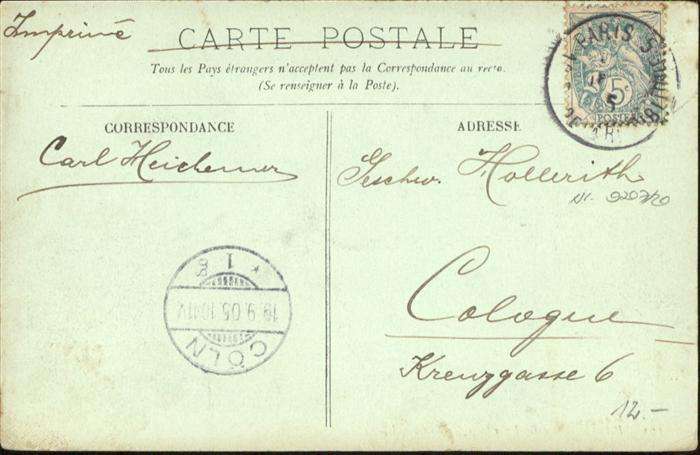 Imprimé
CARTE POSTALE
Tous les Pays étrangers n'acceptent pas la Correspondance au recto.
(Se renseigner à la Poste).
CORRESPONDANCE
ADRESSE
Carl
Geschw. Hollerith
Cologne
Kreuzgasse 6
12.-
PARIS
5
POSTES
CÖLN
* 1 g
18.9.05.10-11V